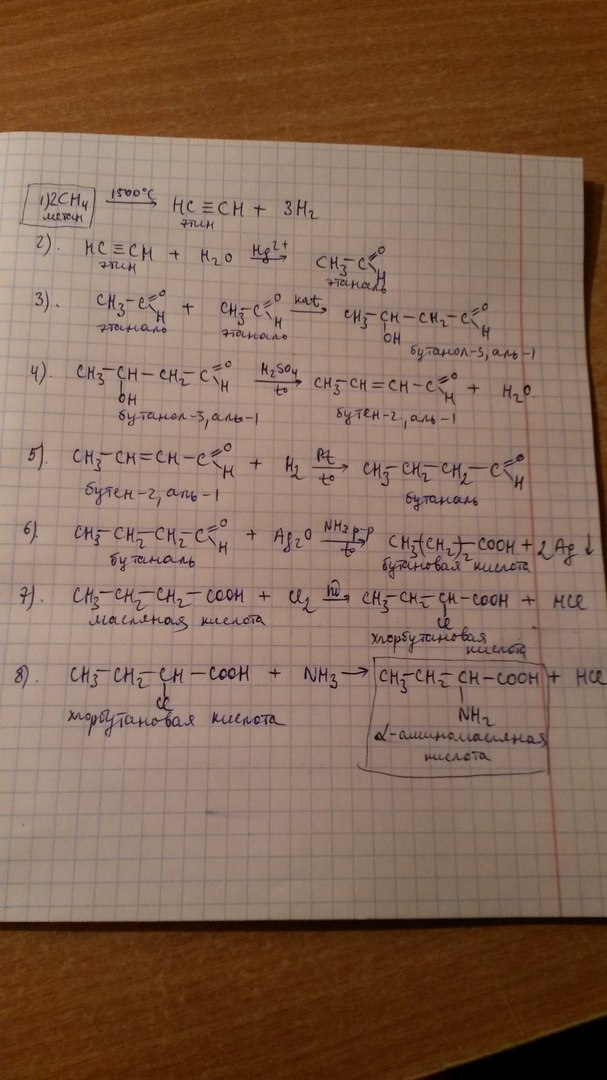 1) 2CH₄ 1500°C → HC≡CH + 3H₂
метан этин
2). HC≡CH + H₂O Hg²⁺ → CH₃–C(=O)H
этин этаналь
3). CH₃–C(=O)H + CH₃–C(=O)H кат → CH₃–CH(OH)–CH₂–C(=O)H
этаналь этаналь бутанол-3, аль-1
4). CH₃–CH(OH)–CH₂–C(=O)H H₂SO₄ t° → CH₃–CH=CH–C(=O)H + H₂O.
бутанол-3, аль-1 бутен-2, аль-1
5). CH₃–CH=CH–C(=O)H + H₂ Pt t° → CH₃–CH₂–CH₂–C(=O)H
бутен-2, аль-1 бутаналь
6). CH₃–CH₂–CH₂–C(=O)H + Ag₂O NH₃ р-р t° → CH₃–(CH₂)₂–COOH + 2Ag↓
бутаналь бутановая кислота
7). CH₃–CH₂–CH₂–COOH + Cl₂ hν → CH₃–CH₂–CH(Cl)–COOH + HCl
масляная кислота хлорбутановая
кислота
8). CH₃–CH₂–CH(Cl)–COOH + NH₃ → CH₃–CH₂–CH(NH₂)–COOH + HCl
хлорбутановая кислота α-аминомасляная
кислота